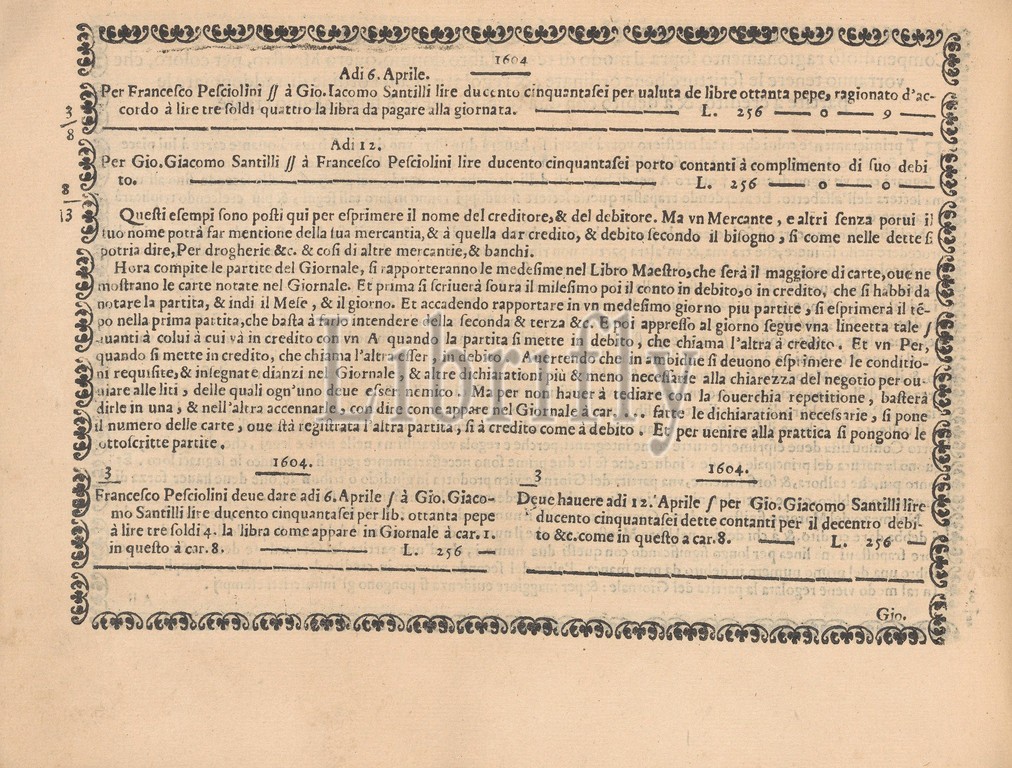 1604
Adi 6. Aprile.
Per Francesco Pesciolini // à Gio. Iacomo Santilli lire ducento cinquantasei per ualuta de libre ottanta pepe, ragionato d'ac-
cordo à lire tre soldi quattro la libra da pagare alla giornata. L. 256 — 0 — 9 —
3
8
Adi 12.
Per Gio. Giacomo Santilli // à Francesco Pesciolini lire ducento cinquantasei porto contanti à complimento di suo debi
to. L. 256 — 0 — 0 —
8
13
Questi esempi sono posti qui per esprimere il nome del creditore, & del debitore. Ma vn Mercante, e altri senza porui il
suo nome potrà far mentione della sua mercantia, & à quella dar credito, & debito secondo il bisogno, si come nelle dette si
potria dire, Per drogherie &c. & così di altre mercantie, & banchi.
Hora compite le partite del Giornale, si rapporteranno le medesime nel Libro Maestro, che serà il maggiore di carte, oue ne
mostrano le carte notate nel Giornale. Et prima si scriuerà soura il milesimo poi il conto in debito, o in credito, che si habbi da
notare la partita, & indi il Mese, & il giorno. Et accadendo rapportare in vn medesimo giorno piu partite, si esprimerà il tē-
po nella prima partita, che basta à fare intendere della seconda & terza &c. E poi appresso al giorno segue vna lineetta tale /
auanti à colui à cui và in credito con vn A quando la partita si mette in debito, che chiama l'altra à credito. Et vn Per,
quando si mette in credito, che chiama l'altra esser, in debito. Auertendo che in ambidue si deuono esprimere le conditio-
ni requisite, & insegnate dianzi nel Giornale, & altre dichiarationi più & meno necessarie alla chiarezza del negotio per ou-
uiare alle liti, delle quali ogn'uno deue esser nemico. Ma per non hauer à tediare con la souerchia repetitione, basterà
dirle in una, & nell'altra accennarle, con dire come appare nel Giornale à car. ... fatte le dichiarationi necessarie, si pone
il numero delle carte, oue stà registrata l'altra partita, si à credito come à debito. Et per uenire alla prattica si pongono le
sottoscritte partite.
3 1604.
Francesco Pesciolini deue dare adi 6. Aprile / à Gio. Giaco-
mo Santilli lire ducento cinquantasei per lib. ottanta pepe
à lire tre soldi 4. la libra come appare in Giornale à car. 1.
in questo à car. 8. L. 256 —
3 1604.
Deue hauere adi 12. Aprile / per Gio. Giacomo Santilli lire
ducento cinquantasei dette contanti per il decentro debi-
to &c. come in questo a car. 8. L. 256 —
Gio.
Librifly